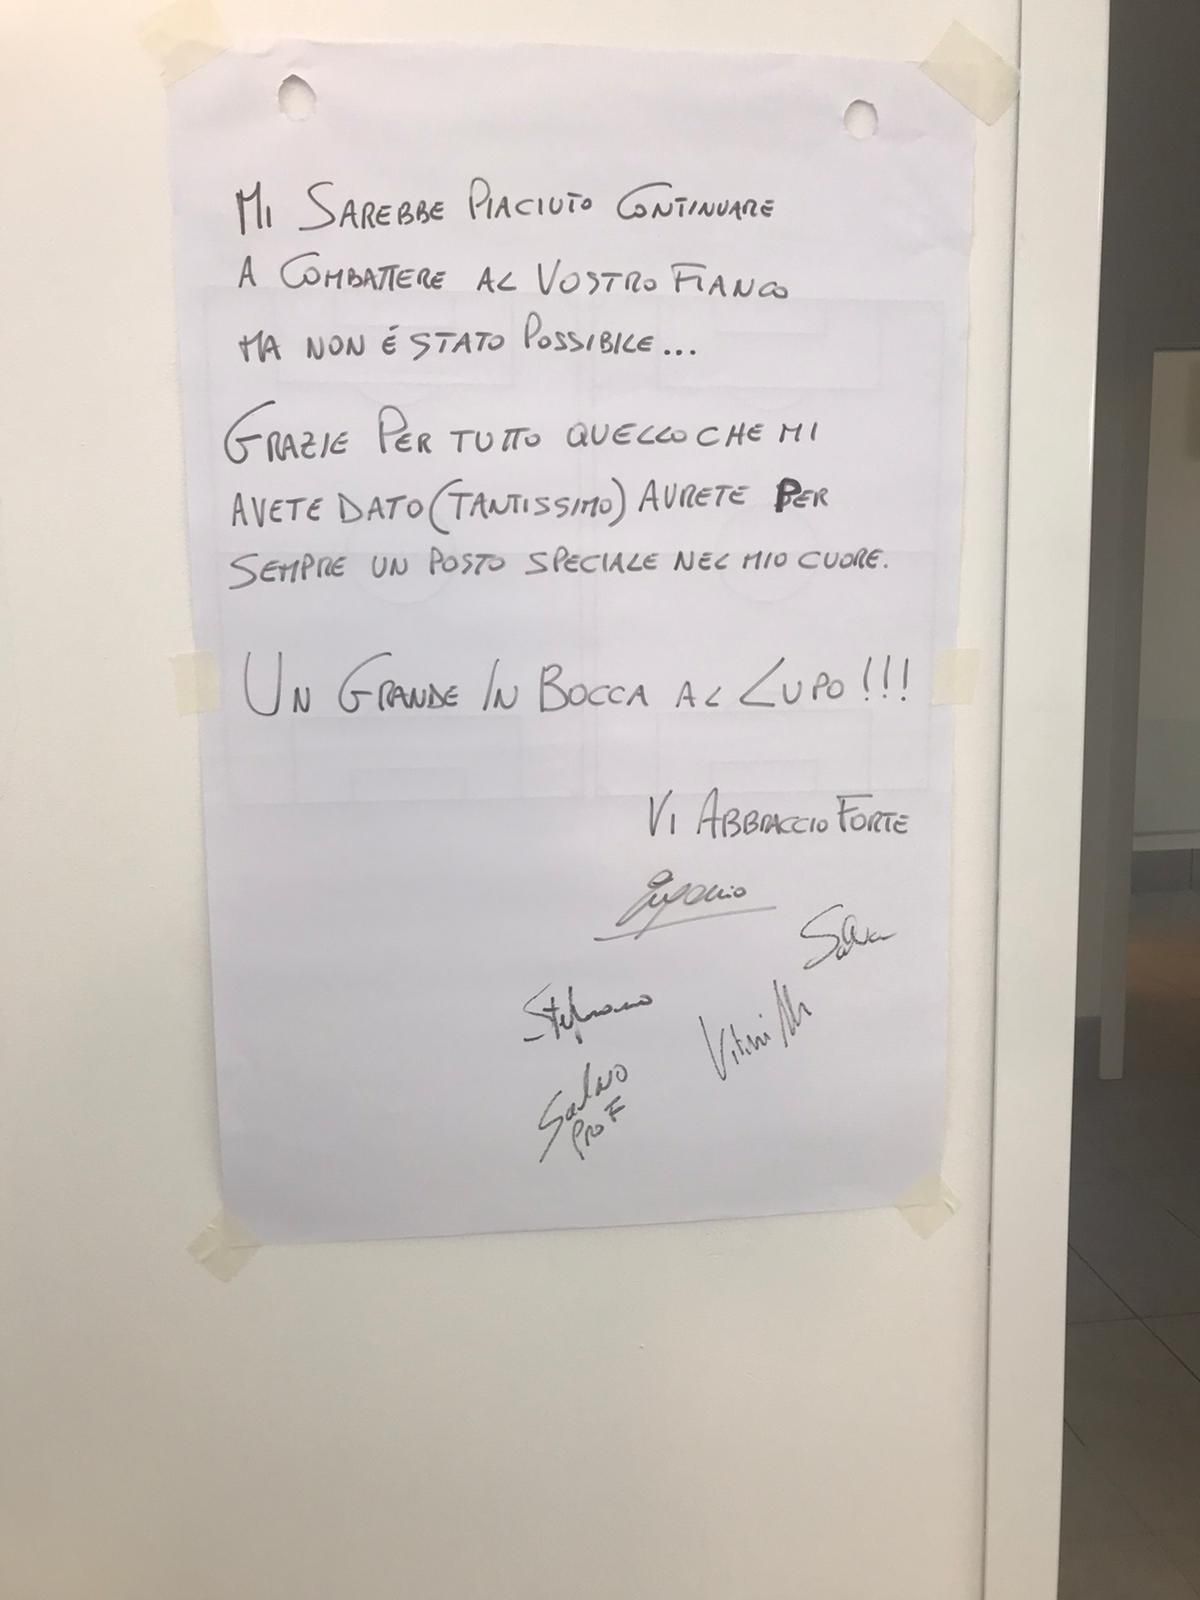 MI SAREBBE PIACIUTO CONTINUARE
A COMBATTERE AL VOSTRO FIANCO
MA NON É STATO POSSIBILE...
GRAZIE PER TUTTO QUELLO CHE MI
AVETE DATO (TANTISSIMO) AVRETE PER
SEMPRE UN POSTO SPECIALE NEL MIO CUORE.
UN GRANDE IN BOCCA AL LUPO!!!
VI ABBRACCIO FORTE
Eugenio
Stefano
Salvo
PROF